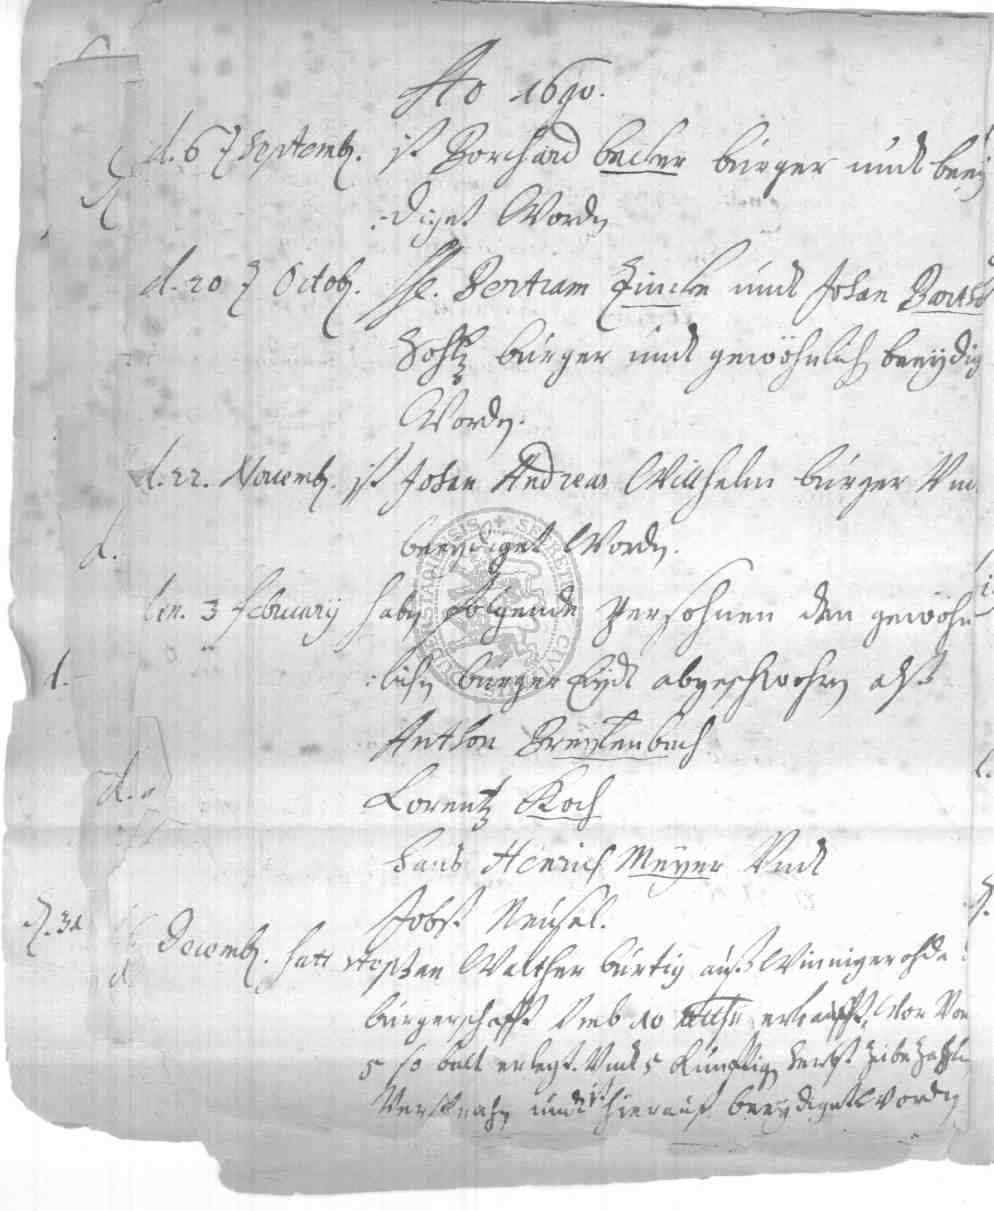 Ao 1690.
d. 6 t Septemb. ist Borchard Becker bürger undt beey
diget Worden
d. 20 t Octob. Bertram Fincke undt Johan Barth
Holtz bürger undt gewöhnlich beeydig
Worden.
d. 22. Novemb. ist Johan Andreas Willhelm bürger Vn
d. beeydiget Worden.
den. 3 February haben folgende Persohnen den gewöhn
1. lichen bürger Eydt abgeschwohren alß
Anthon Breytenbach
d. Lorentz Koch
Hans Henrich Meyer Vndt
Jobst Neusel.
d. 31 Decemb. hatt Walther bürtig auß Winnigerohde
bürgerschafft Vmb 10 erkaufft, Wor Von
5 so balt erlegt. Vndt 5 künfftig Herbst zubezahlen
Versprochen undt ist hierauf beeydiget Worden